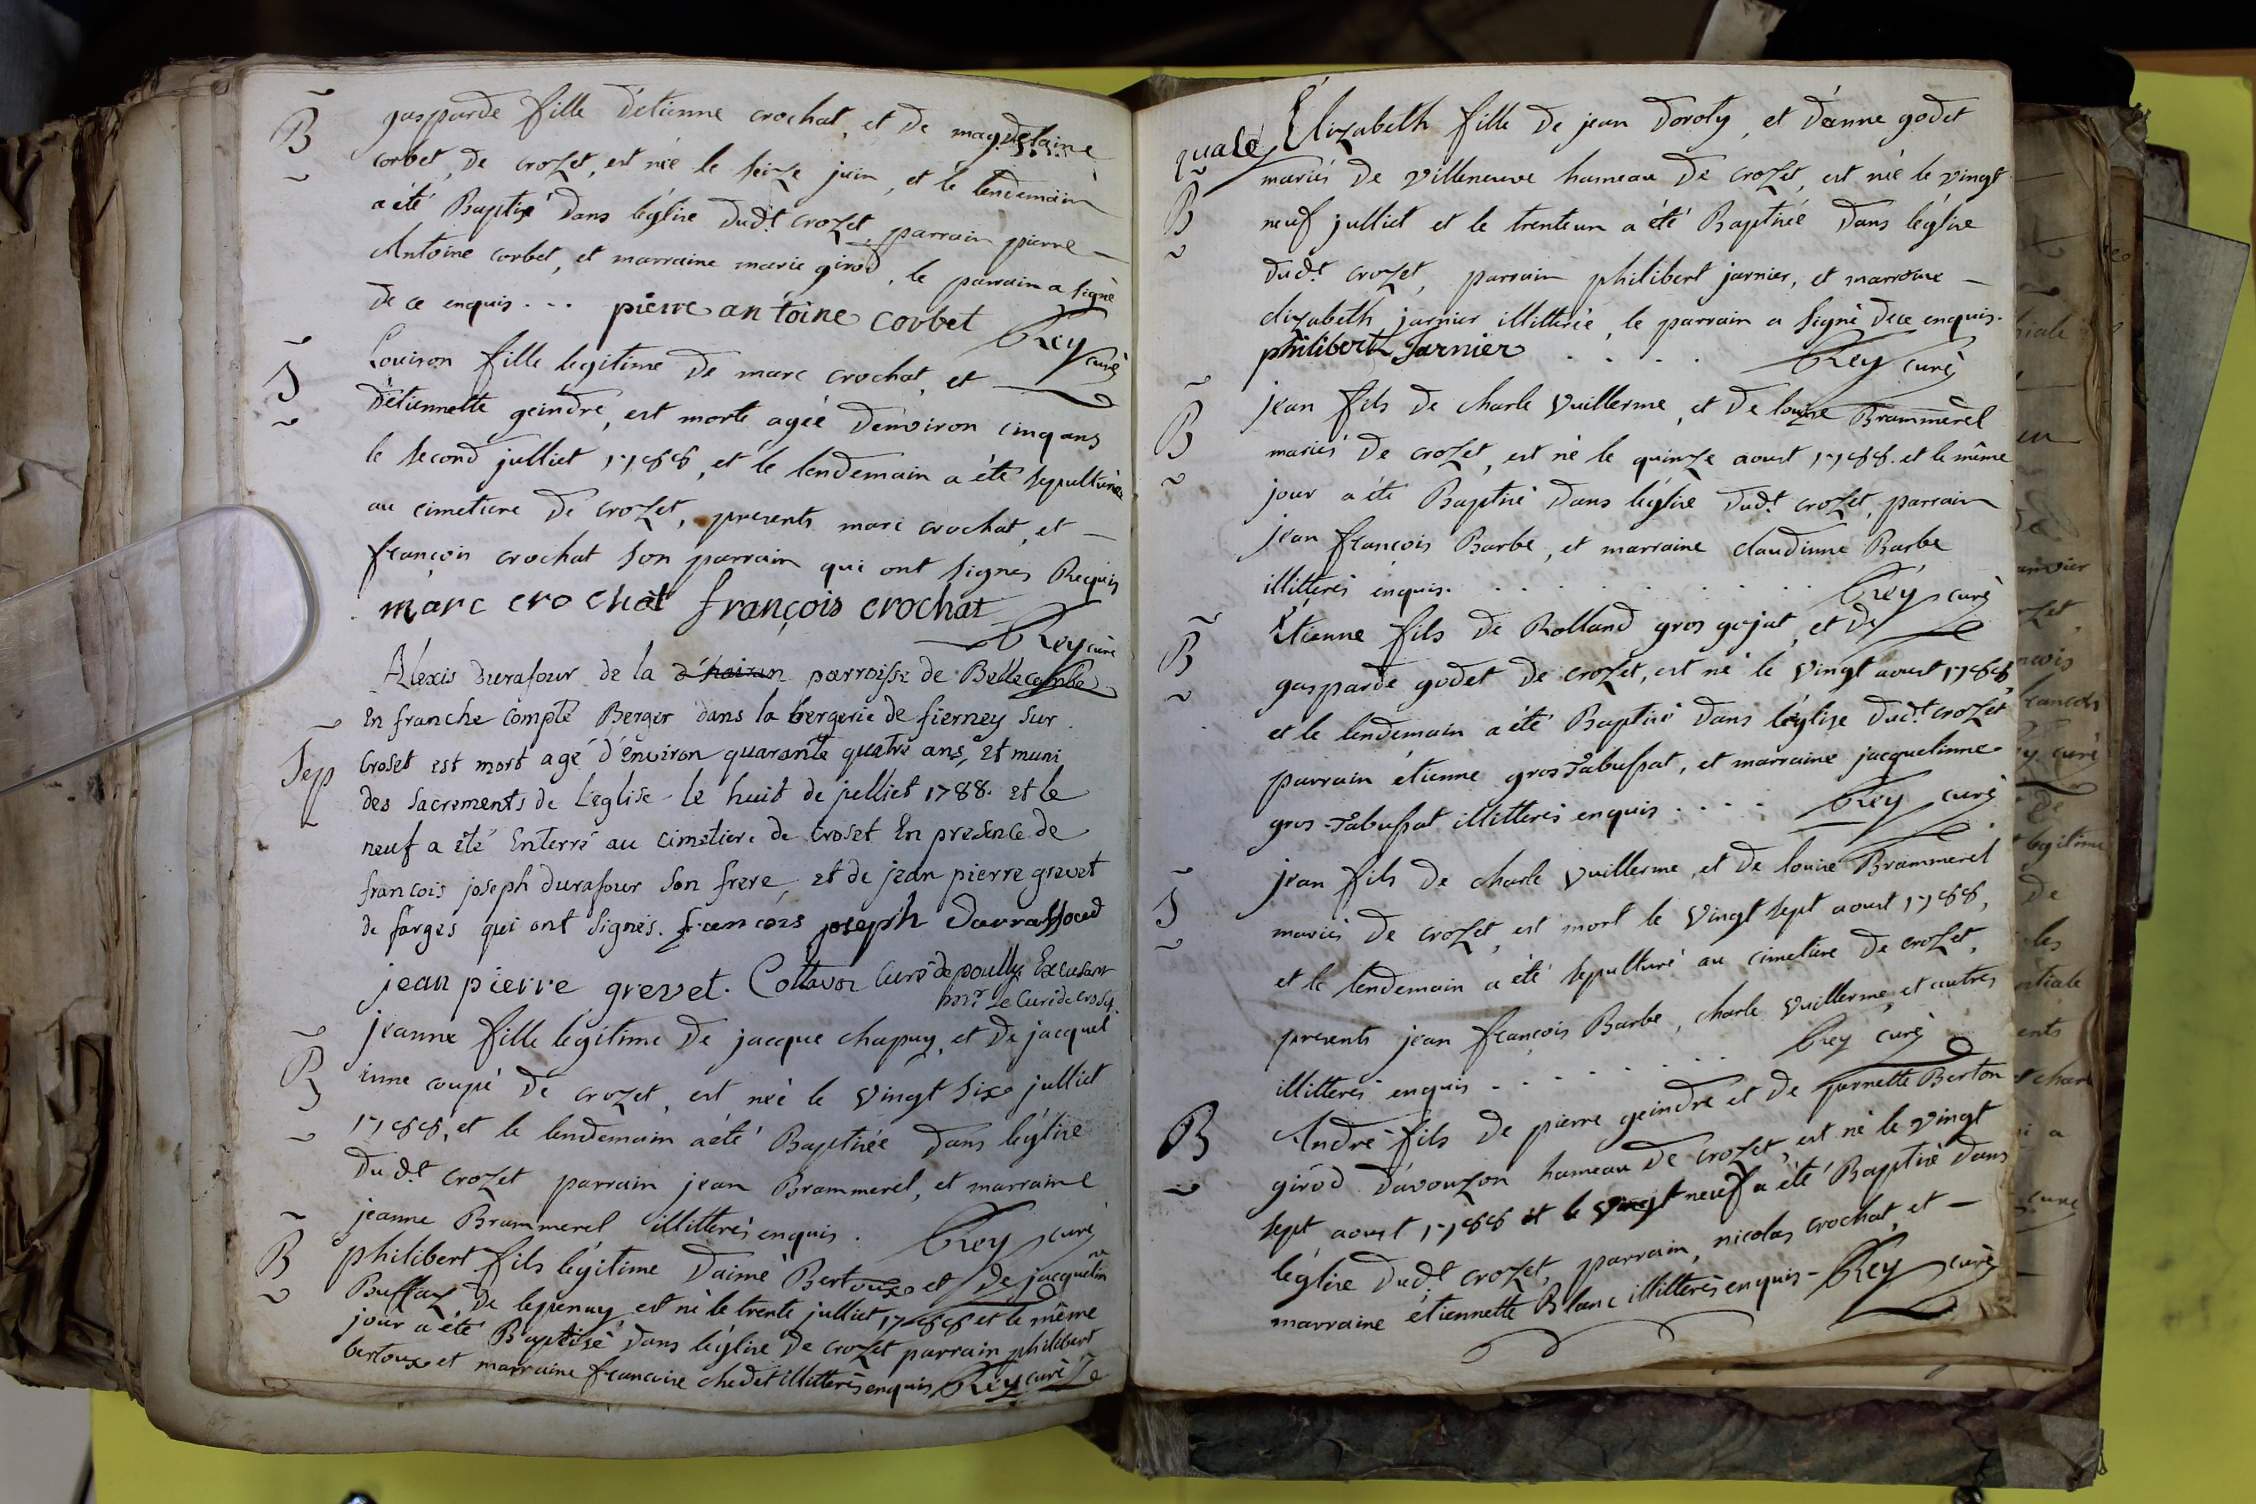 B
gasparde fille d'etienne crochat, et de magdelaine
corbet, de crozet, est née le seize juin, et le lendemain
a été Baptisé dans l'église dud.t crozet, parrain pierre
Antoine corbet, et marraine marie girod, le parrain a signé
de ce enquis... pierre antoine corbet Rey curé
S
Louison fille legitime de marc crochat, et
d'étiennette geindre, est morte agée d'environ cinq ans
le second julliet 1788, et le lendemain a été sepulturée
au cimetiere de crozet, presents marc crochat, et
françois crochat son parrain qui ont signés Requis
marc crochat françois crochat
Rey curé
Alexis durafour de la parroisse de Bellecombe
En franche compté Berger dans la bergerie de fierney sur
Sep
Croset est mort agé d'environ quarante quatre ans, et muni
des sacrements de L'eglise le huit de julliet 1788. et le
neuf a été Enterré au cimetiere de Croset En presence de
francois joseph durafour son frere, et de jean pierre grevet
de farges qui ont signés. francois joseph
jean pierre grevet. curé de poully Excusant
mr. Le Curé de Croset
B
jeanne fille légitime de jacque chapuy, et de jacquel
inne coupé de crozet, est née le vingt six julliet
1788, et le lendemain a été Baptisée dans l'église
du d.t crozet parrain jean Brammerel, et marraine
jeanne Brammerel illitterés enquis. Rey curé
B
philibert fils légitime d'aimé Bertoux et de jacquelin
ne
Buffaz, de lepenuy, est né le trente julliet 1788 et le même
jour a été Baptisé dans l'église de crozet parrain philibert
bertoux et marraine francoise chedet illitterés enquis Rey curé
Élizabeth fille de jean doroty, et d'anne godet
B
mariés de villeneuve hameau de crozet, est née le vingt
neuf julliet et le trenteun a été Baptisée dans l'église
dud.t crozet, parrain philibert jarnier, et marraine
elizabeth jarnier illitterée, le parrain a signé de ce enquis.
philibert Jarnier .... Rey curé
B
jean fils de charle vuillerme, et de louise Brammerel
mariés de crozet, est né le quinze aoust 1788. et le même
jour a été Baptisé dans l'église dud.t crozet, parrain
jean francois Barbe, et marraine claudinne Barbe
illitterés enquis. ........ Rey curé
B
Étienne fils de Rolland gros gojat, et de
gasparde godet de crozet, est né le vingt aoust 1788,
et le lendemain a été Baptisé dans l'église dud.t crozet
parrain étienne gros, et marraine jacquelinne
gros illitterés enquis .... Rey curé
S
jean fils de charle vuillerme, et de louise Brammerel
mariés de crozet, est mort le vingt sept aoust 1788,
et le lendemain a été sepulturé au cimetiere de crozet,
presents jean françois Barbe, charle vuillerme, et autres
illitterés enquis ........ Rey curé
B
André fils de pierre geindre et de pernette Berton
girod d'avouzon hameau de crozet, est né le vingt
sept aoust 1788 et le vingt neuf a été Baptisé dans
l'église dud.t crozet, parrain, nicolas crochat, et
marraine étiennette Blanc illitterés enquis - Rey curé